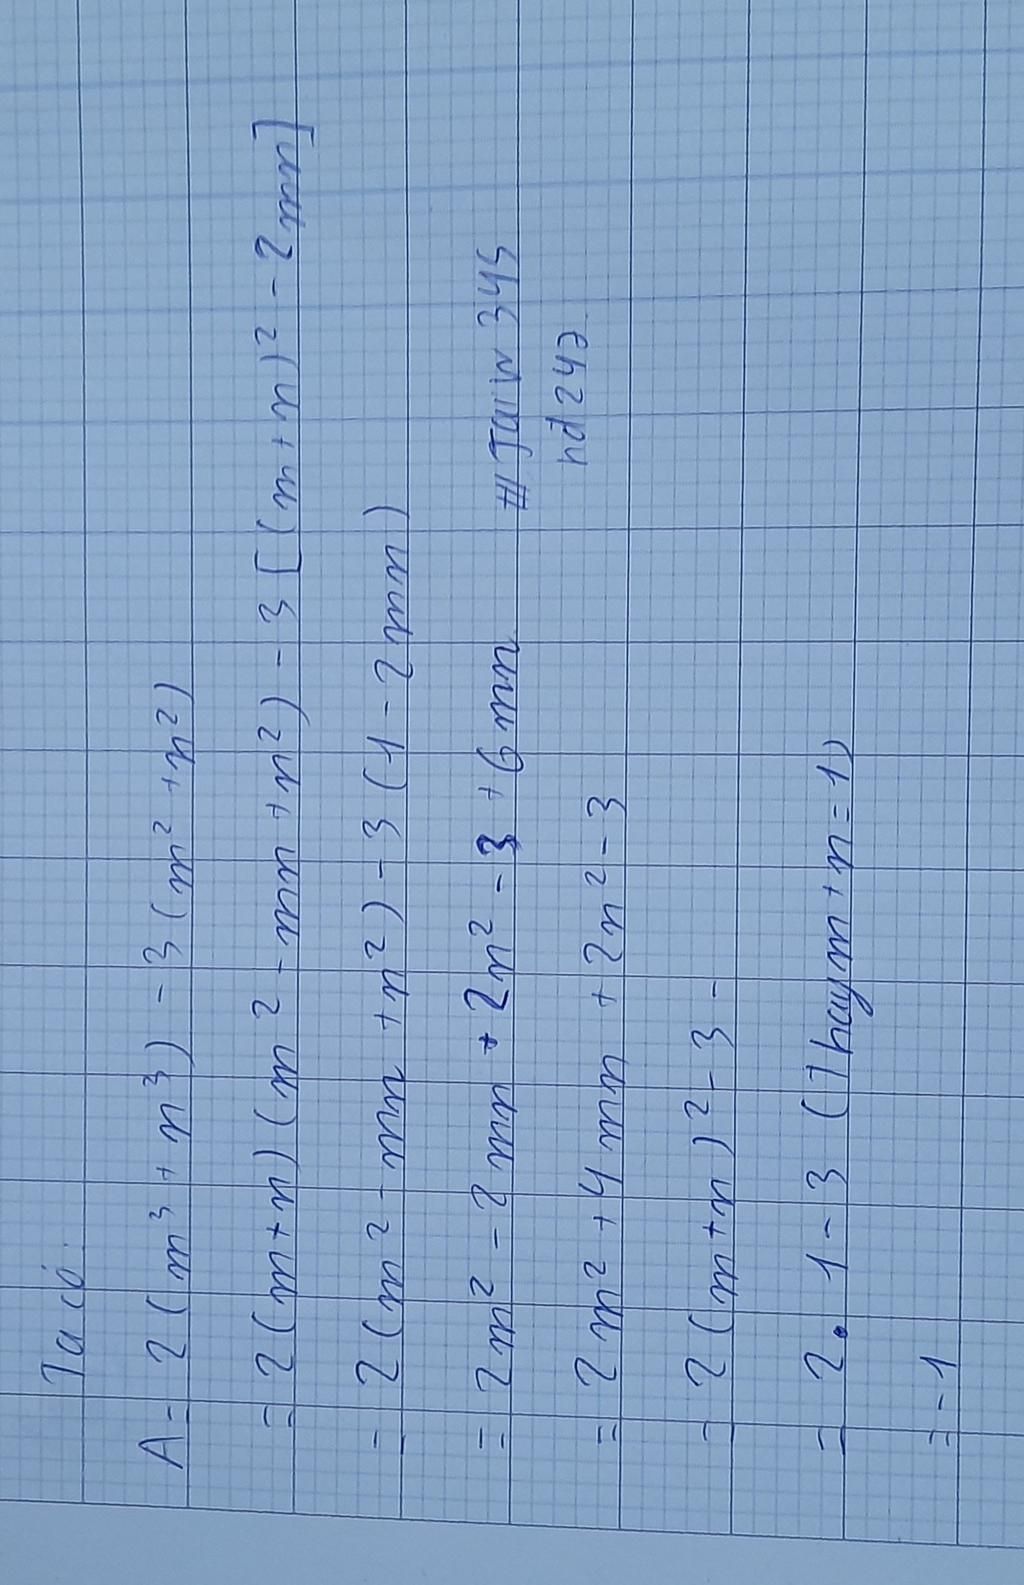 Ta có:
A = 2(m³ + n³) - 3(m² + n²)
= 2(m+n)(m² - mn + n²) - 3[(m+n)² - 2mn]
= 2(m² - mn + n²) - 3(1 - 2mn)
= 2m² - 2mn + 2n² - 3 + 6mn
#Tariw 345
hd247
= 2m² + 4mn + 2n² - 3
= 2(m+n)² - 3 -
= 2. 1 - 3 (Thay m+n=1)
= -1